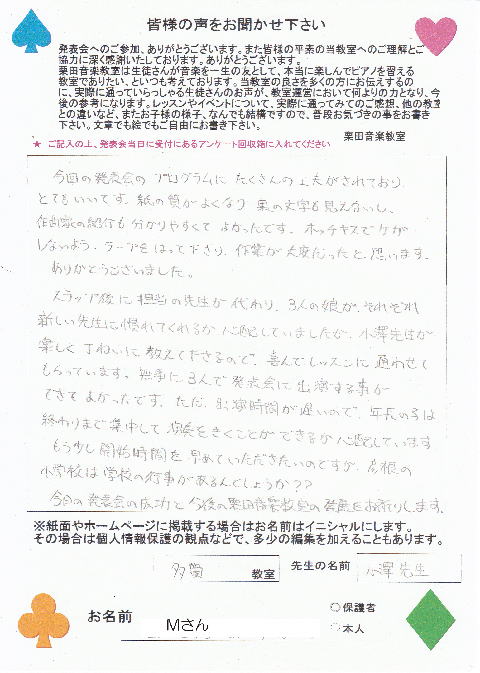 皆様の声をお聞かせ下さい
発表会へのご参加、ありがとうございます。また皆様の平素の当教室へのご理解とご
協力に深く感謝いたしております。ありがとうございます。
栗田音楽教室は生徒さんが音楽を一生の友として、本当に楽しんでピアノを習える
教室でありたい、といつも考えております。当教室の良さを多くの方にお伝えするの
に、実際に通っていらっしゃる生徒さんのお声が、教室運営において何よりの力となり、今
後の参考になります。レッスンやイベントについて、実際に通ってみてのご感想、他の教室
との違いなど、またお子様の様子、なんでも結構ですので、普段お気づきの事をお書き
下さい。文章でも絵でもご自由にお書き下さい。
栗田音楽教室
★ ご記入の上、発表会当日に受付にあるアンケート回収箱に入れてください
今回の発表会のプログラムに たくさんの工夫がされており
とてもいいです。紙の質がよくなり 裏の文字も見えないし、
作曲家の紹介も分かりやすくて よかったです。ホッチキスでケガ
しないよう、テープをはって下さり、作業が大変だったと思います。
ありがとうございました。
ステップ後に担当の先生が代わり、3人の娘が、それぞれ
新しい先生に慣れてくれるか心配していましたが、小澤先生が
楽しく ていねいに 教えてくださるので、喜んでレッスンに 通わせて
もらっています。無事に3人で発表会に出演する事が
できて よかったです。ただ、出演時間が遅いので、年長の子は
終わりまで集中して 演奏をきくことが できるか心配しています
もう少し開始時間を 早めていただきたいのですが、彦根の
小学校は学校の行事があるんでしょうか??
今日の発表会の成功と今後の栗田音楽教室の発展をお祈りします。
※紙面やホームページに掲載する場合はお名前はイニシャルにします。
その場合は個人情報保護の観点などで、多少の編集を加えることもあります。
多賀 教室 先生の名前 小澤先生
お名前 Mさん
○保護者
○本人